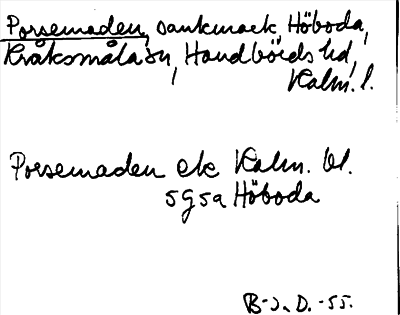 Porsemaden, sankmark, Höboda,
Kråksmåla sn, Handbörds hd,
Kalm. l.
Porsemaden ek Kalm. bl.
5g5a Höboda
B-J. D. -55.